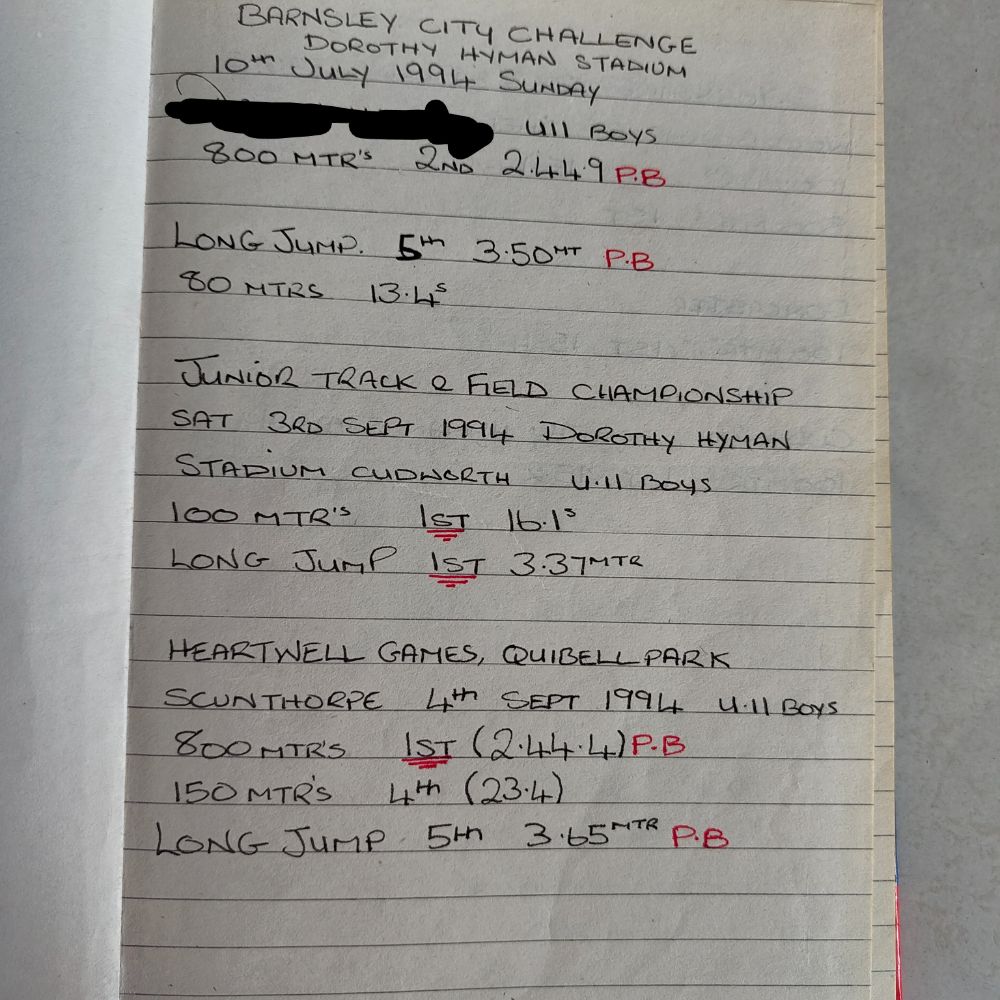 BARNSLEY CITY CHALLENGE
DOROTHY HYMAN STADIUM
10th JULY 1994 SUNDAY
U11 BOYS
800 MTR'S 2ND 2.44.9 P.B
LONG JUMP. 5th 3.50MT P.B
80 MTRS 13.4s
JUNIOR TRACK & FIELD CHAMPIONSHIP
SAT 3RD SEPT 1994 DOROTHY HYMAN
STADIUM CUDWORTH U.11 BOYS
100 MTR'S 1ST 16.1s
LONG JUMP 1ST 3.37MTR
HEARTWELL GAMES, QUIBELL PARK
SCUNTHORPE 4th SEPT 1994 U.11 BOYS
800 MTR'S 1ST (2.44.4) P.B
150 MTR'S 4th (23.4)
LONG JUMP 5th 3.65MTR P.B